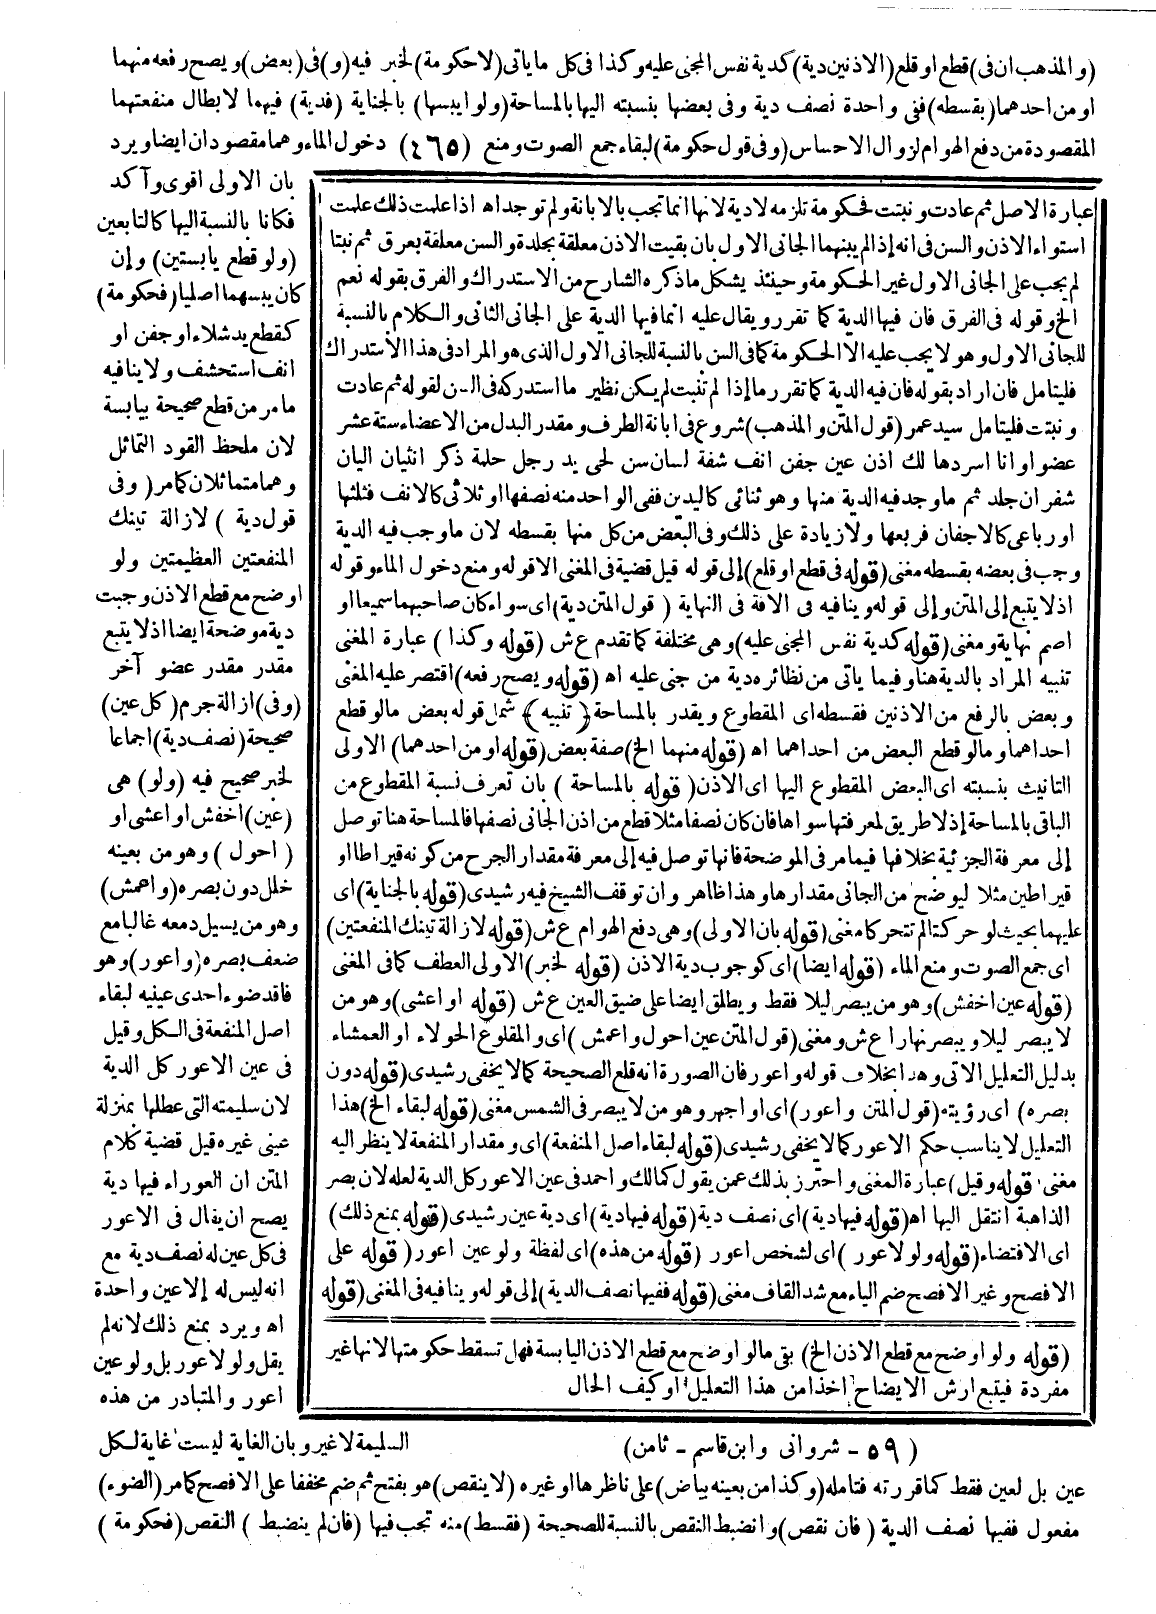 (والمذهب ان فى) قطع او قلع (الاذنين دية) كدية نفس المجنى عليه وكذا فى كل ما ياتى (لا حكومة) لخبر فيه (و) فى (بعض) ويصح رفعه منهما
او من احدهما (بقسطه) ففى واحدة نصف دية وفى بعضها بنسبته اليها بالمساحة (ولو ايبسها) بالجناية (فدية) فيهما لابطال منفعتهما
المقصودة من دفع الهوام لزوال الاحساس (وفى قول حكومة) لبقاء جمع الصوت ومنع (٤٦٥) دخول الماء وهما مقصودان ايضا ويرد
بان الاولى اقوى وآكد
فكانا بالنسبة اليها كالتابعين
(ولو قطع يابستين) وإن
كان يبسهما اصليا (فحكومة)
كقطع يد شلاء او جفن او
انف استحشف ولا ينافيه
ما مر من قطع صحيحة بيابسة
لان ملحظ القود التماثل
وهما متماثلان كما مر (وفى
قول دية) لازالة تينك
المنفعتين العظيمتين ولو
اوضح مع قطع الاذن وجبت
دية موضحة ايضا اذ لا يتبع
مقدر مقدر عضو آخر
(وفى) ازالة جرم (كل عين)
صحيحة (نصف دية) اجماعا
لخبر صحيح فيه (ولو) هى
(عين) اخفش او اعشى او
(احول) وهو من بعينه
خلل دون بصره (واعمش)
وهو من يسيل دمعه غالبا مع
ضعف بصره (واعور) وهو
فاقد ضوء احدى عينيه لبقاء
اصل المنفعة فى الكل وقيل
فى عين الاعور كل الدية
لان سليمته التى عطلها بمنزلة
عينى غيره قيل قضية كلام
المتن ان العوراء فيها دية
يصح ان يقال فى الاعور
فى كل عين له نصف دية مع
انه ليس له إلا عين واحدة
اه ويرد بمنع ذلك لانه لم
يقل ولو لاعور بل ولو عين
اعور والمتبادر من هذه
عبارة الاصل ثم عادت ونبتت فحكومة تلزمه لا دية لانها انما تجب بالابانة ولم توجد اه اذا علمت ذلك علمت
استواء الاذن والسن فى انه إذا لم يبنهما الجانى الاول بان بقيت الاذن معلقة بجلدة والسن معلقة بعرق ثم نبتا
لم يجب على الجانى الاول غير الحكومة وحينئذ يشكل ما ذكره الشارح من الاستدراك والفرق بقوله نعم
الخ وقوله فى الفرق فان فيها الدية كما تقرر ويقال عليه انما فيها الدية على الجانى الثانى والكلام بالنسبة
للجانى الاول وهو لا يجب عليه الا الحكومة كما فى السن بالنسبة للجانى الاول الذى هو المراد فى هذا الاستدراك
فليتامل فان اراد بقوله فان فيه الدية كما تقرر ما إذا لم تنبت لم يكن نظير ما استدركه فى السن لقوله ثم عادت
ونبتت فليتامل سيد عمر (قول المتن والمذهب) شروع فى ابانة الطرف ومقدر البدل من الاعضاء ستة عشر
عضوا وانا اسردها لك اذن عين جفن انف شفة لسان سن لحى يد رجل حلمة ذكر انثيان اليان
شفران جلد ثم ما وجد فيه الدية منها وهو ثنائى كاليدين ففى الواحد منه نصفها او ثلاثى كالانف فثلثها
او رباعى كالاجفان فربعها ولا زيادة على ذلك وفى البعض من كل منها بقسطه لان ما وجب فيه الدية
وجب فى بعضه بقسطه مغنى (قوله فى قطع او قلع) إلى قوله قيل قضية فى المغنى الا قوله ومنع دخول الماء وقوله
اذ لا يتبع إلى المتن وإلى قوله وينافيه فى الافة فى النهاية (قول المتن دية) اى سواء كان صاحبهما سميعا او
اصم نهاية ومغنى (قوله كدية نفس المجنى عليه) وهى مختلفة كما تقدم ع ش (قوله وكذا) عبارة المغنى
تنبيه المراد بالدية هنا وفيما ياتى من نظائره دية من جنى عليه اه (قوله ويصح رفعه) اقتصر عليه المغنى
وبعض بالرفع من الاذنين فقسطه اى المقطوع ويقدر بالمساحة (تنبيه) شمل قوله بعض ما لو قطع
احداهما وما لو قطع البعض من احداهما اه (قوله منهما الخ) صفة بعض (قوله او من احدهما) الاولى
التانيث بنسبته اى البعض المقطوع اليها اى الاذن (قوله بالمساحة) بان تعرف نسبة المقطوع من
الباقى بالمساحة إذ لا طريق لمعرفتها سواها فان كان نصفا مثلا قطع من اذن الجانى نصفها فالمساحة هنا توصل
إلى معرفة الجزئية بخلافها فيما مر فى الموضحة فانها توصل فيه إلى معرفة مقدار الجرح من كونه قيراطا او
قيراطين مثلا ليوضح من الجانى مقدارها وهذا ظاهر وان توقف الشيخ فيه رشيدى (قوله بالجناية) اى
عليهما بحيث لو حركتا لم تتحركا مغنى (قوله بان الاولى) وهى دفع الهوام ع ش (قوله لازالة تينك المنفعتين)
اى جمع الصوت ومنع الماء (قوله ايضا) اى كوجوب دية الاذن (قوله لخبر) الاولى العطف كما فى المغنى
(قوله عين اخفش) وهو من يبصر ليلا فقط ويطلق ايضا على ضيق العين ع ش (قوله او اعشى) وهو من
لا يبصر ليلا ويبصر نهارا ع ش ومغنى (قول المتن عين احول واعمش) اى والمقلوع الحولاء او العمشاء
بدليل التعليل الاتى وهذا بخلاف قوله واعور فان الصورة انه قلع الصحيحة كما لا يخفى رشيدى (قوله دون
بصره) اى رؤيته (قول المتن واعور) اى او اجهر وهو من لا يبصر فى الشمس مغنى (قوله لبقاء الخ) هذا
التعليل لا يناسب حكم الاعور كما لا يخفى رشيدى (قوله لبقاء اصل المنفعة) اى ومقدار المنفعة لا ينظر اليه
مغنى (قوله وقيل) عبارة المغنى واحترز بذلك عمن يقول كمالك واحمد فى عين الاعور كل الدية لعله لان بصر
الذاهبة انتقل اليها اه (قوله فيها دية) اى نصف دية (قوله فيها دية) اى دية عين رشيدى (قوله بمنع ذلك)
اى الاقتضاء (قوله ولو لاعور) اى لشخص اعور (قوله من هذه) اى لفظة ولو عين اعور (قوله على
الافصح وغير الافصح ضم الياء مع شد القاف مغنى (قوله ففيها نصف الدية) إلى قوله وينافيه فى المغنى (قوله
(قوله ولو اوضح مع قطع الاذن الخ) بقى ما لو اوضح مع قطع الاذن اليابسة فهل تسقط حكومتها لانها غير
مقدرة فيتبع ارش الايضاح اخذا من هذا التعليل او كيف الحال
(٥٩ - شروانى وابن قاسم - ثامن)
السليمة لا غير وبان الغاية ليست غاية لكل
عين بل لعين فقط كما قررته فتامله (وكذا من بعينه بياض) على ناظرها او غيره (لا ينقص) هو بفتح ثم ضم مخففا على الافصح كما مر (الضوء)
مفعول ففيها نصف الدية (فان نقص) وانضبط النقص بالنسبة للصحيحة (فقسط) منه تجب فيها (فان لم ينضبط) النقص (فحكومة)